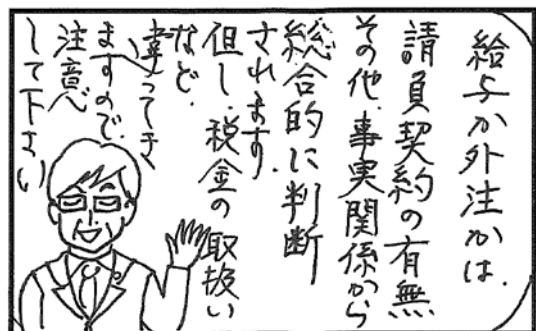 給与か外注かは.
請負契約の有無
その他.事実関係から
総合的に判断
されます.
但し.税金の取扱い
など.
違ってき
ますので.
注意
して下さい